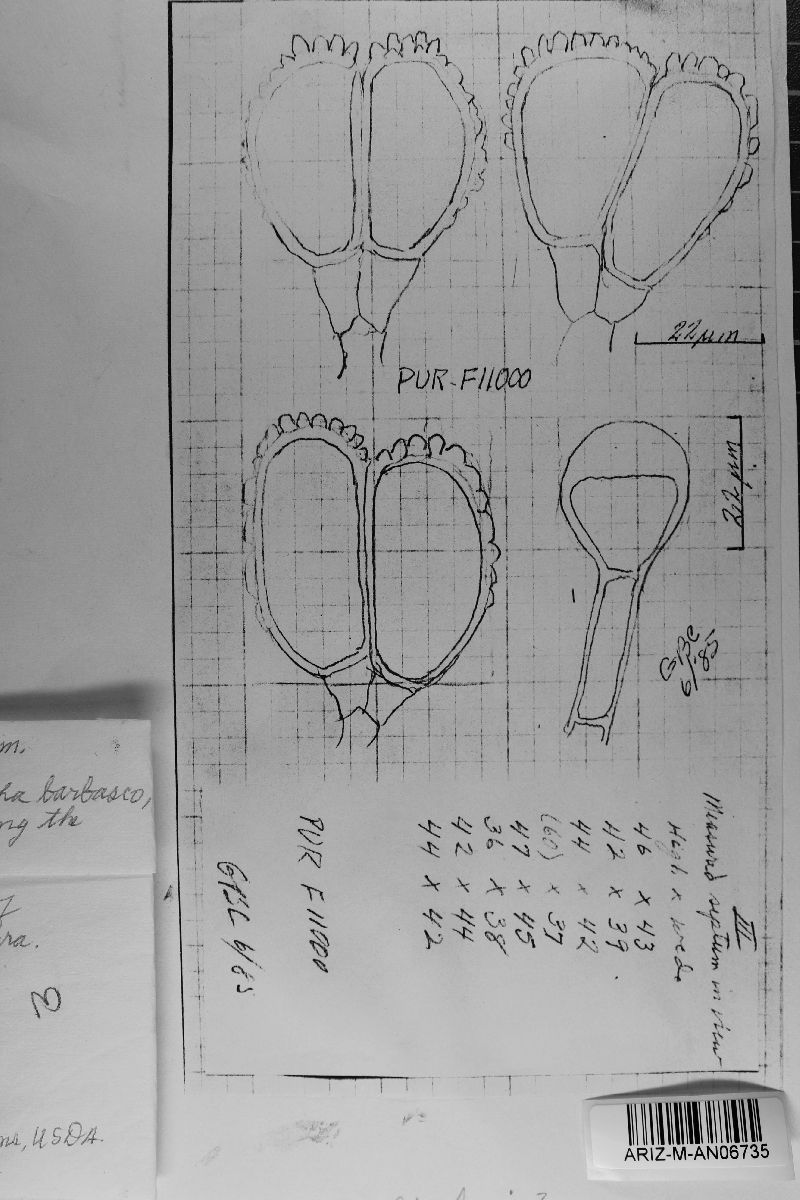 22 µm
PUR-F11000
22 µm
GBC
6/85
III
Measured septum in view
High x wide
46 x 43
42 x 39
44 x 42
(60) x 37
47 x 45
36 x 38
42 x 44
44 x 42
PUR F11000
GBC 6/85
m.
barbasco,
the
3
ns, USDA.
ARIZ-M-AN06735